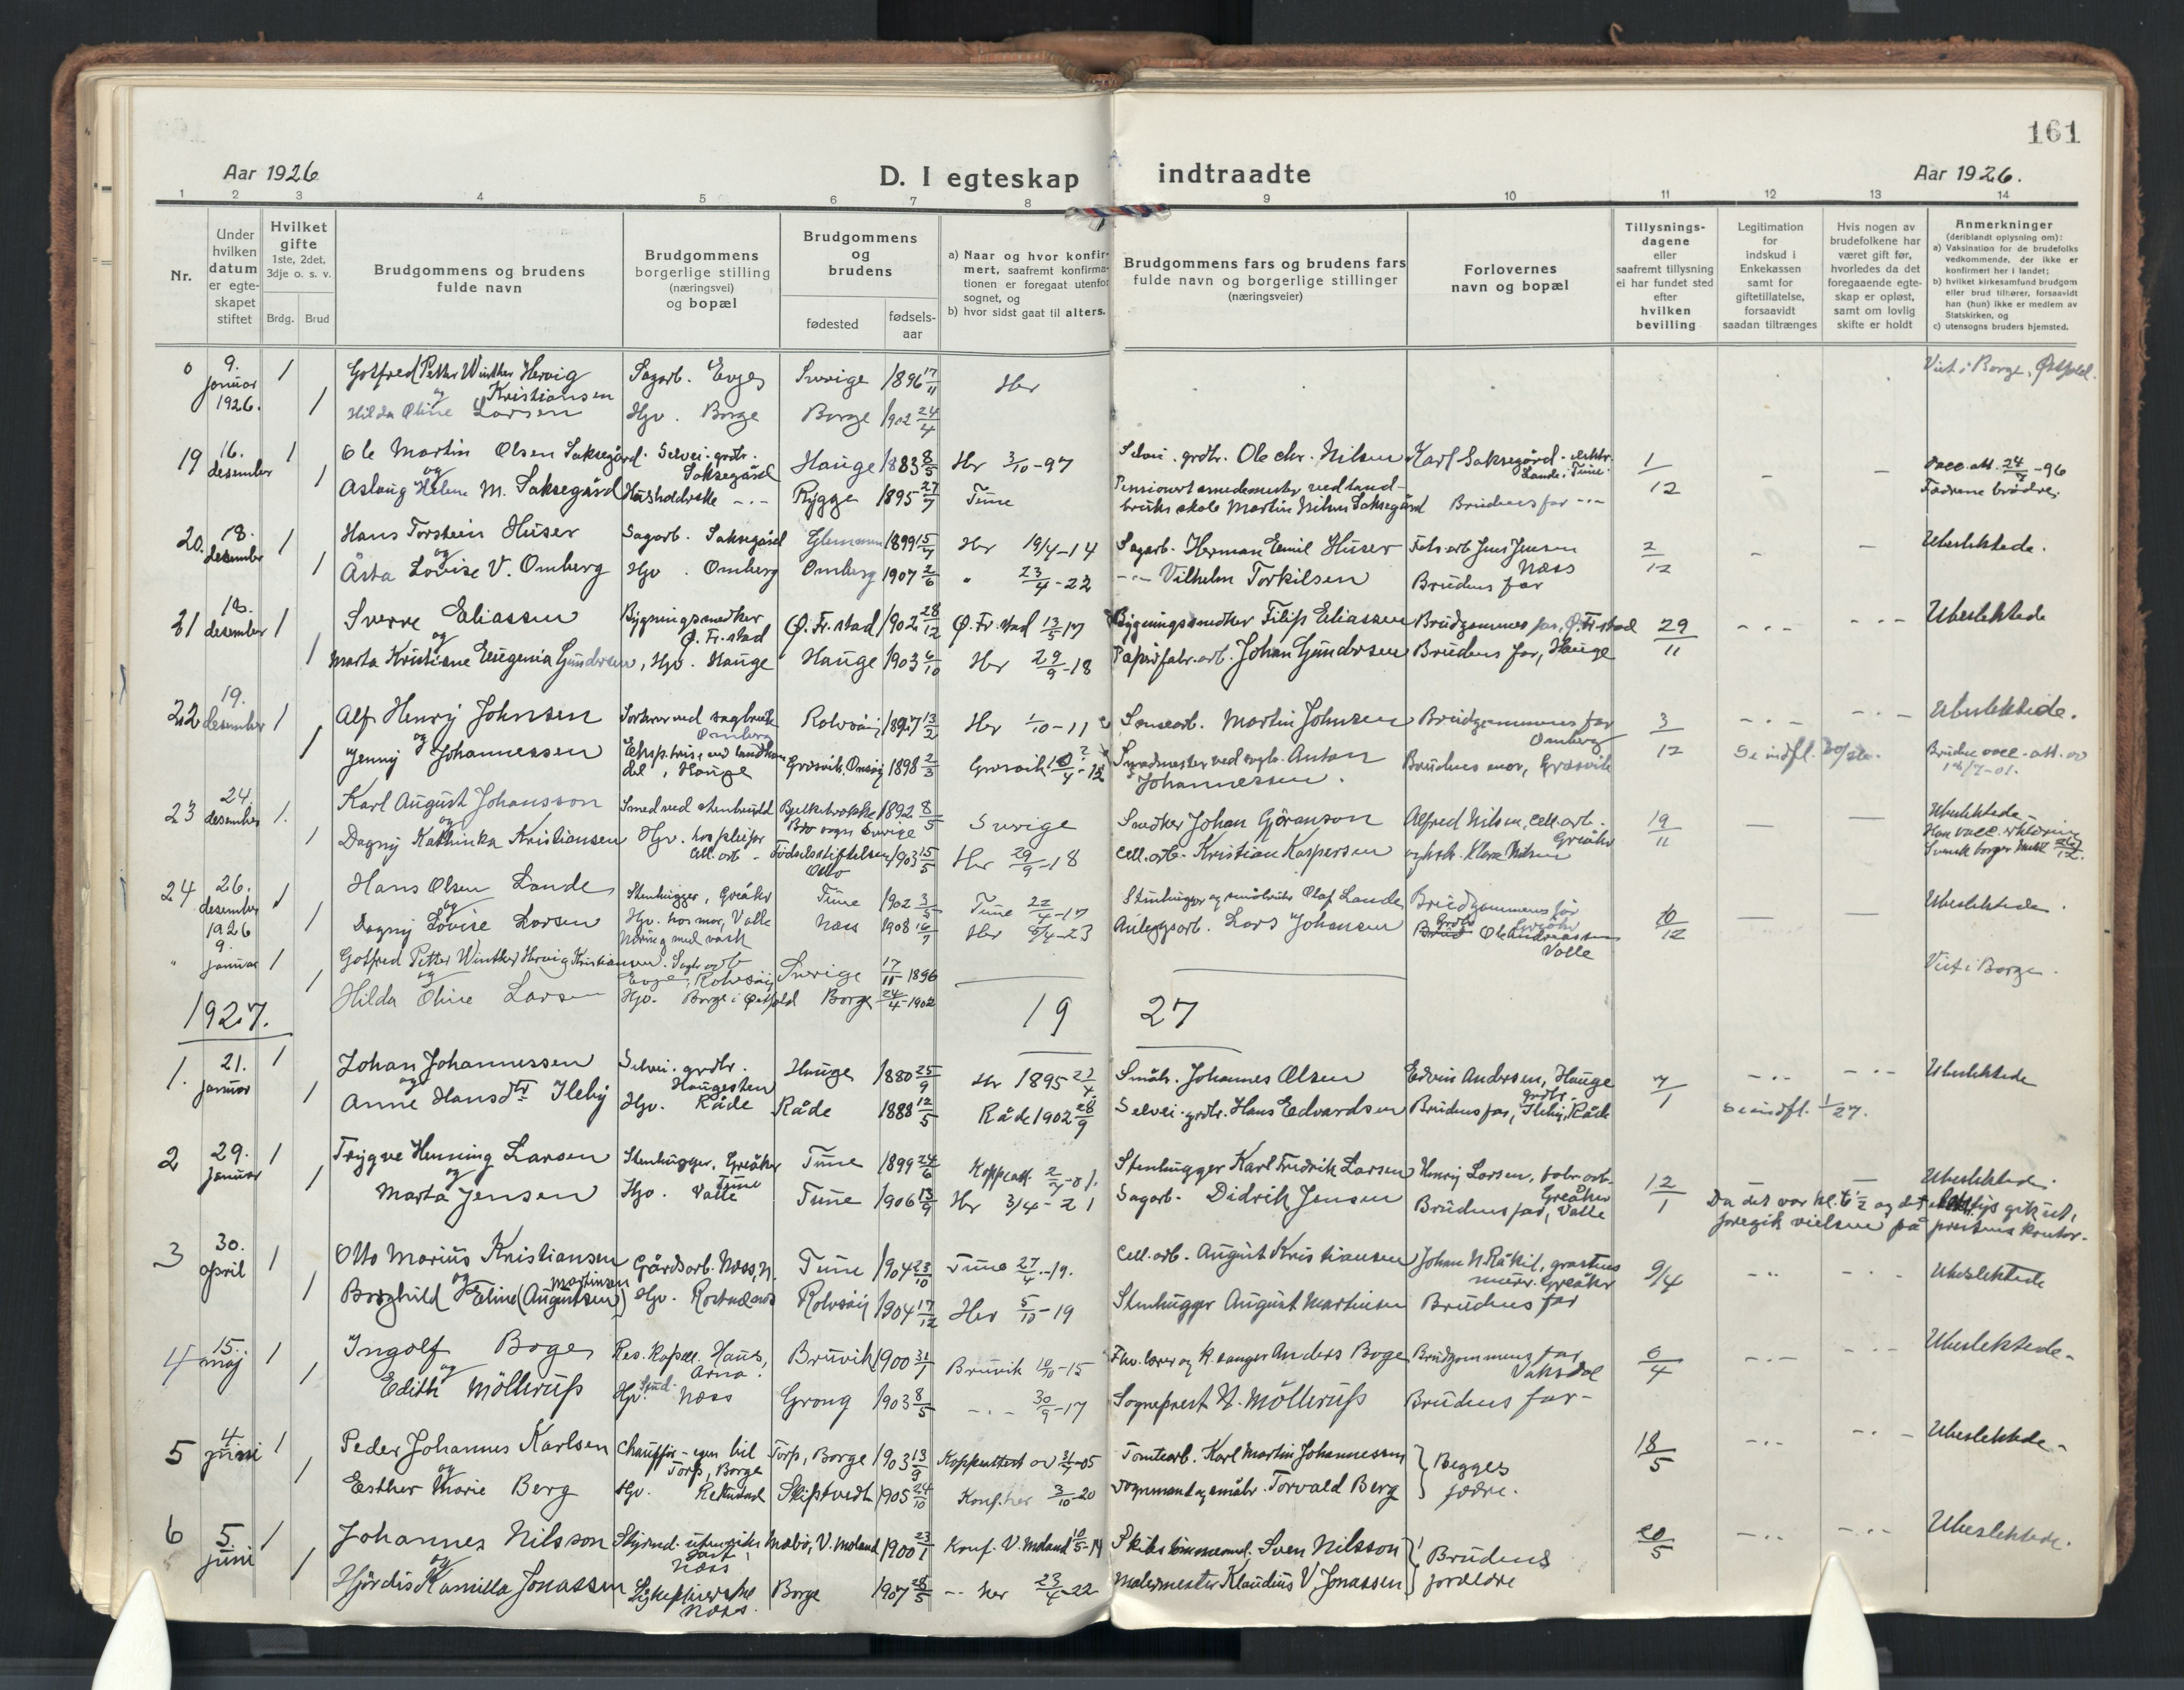 161
Aar 1926
D. I egteskap indtraadte
Aar 1926.
1 2 3 4 5 6 7 8 9 10 11 12 13 14
Nr.
Under hvilken datum er egteskapet stiftet
Hvilket gifte 1ste, 2det, 3dje o. s. v.
Brdg. Brud
Brudgommens og brudens fulde navn
Brudgommens borgerlige stilling (næringsvei) og bopæl
Brudgommens og brudens
fødested
fødselsaar
a) Naar og hvor konfirmert, saafremt konfirmationen er foregaat utenfor sognet, og
b) hvor sidst gaat til alters.
Brudgommens fars og brudens fars fulde navn og borgerlige stillinger (næringsveier)
Forlovernes navn og bopæl
Tillysningsdagene eller saafremt tillysning ei har fundet sted efter hvilken bevilling
Legitimation for indskud i Enkekassen samt for giftetillatelse, forsaavidt saadan tiltrænges
Hvis nogen av brudefolkene har været gift før, hvorledes da det foregaaende egteskap er opløst, samt om lovlig skifte er holdt
Anmerkninger (deriblandt oplysning om):
a) Vaksination for de brudefolks vedkommende, der ikke er konfirmert her i landet;
b) hvilket kirkesamfund brudgom eller brud tilhører, forsaavidt han (hun) ikke er medlem av Statskirken, og
c) utensogns bruders hjemsted.
0 9. januar 1926. 1 Gotfred Petter Winther Hervig Kristiansen Sagarb. Evje Sverige 1896 17/11 Her Viet i Borge, Østfold.
og
1 Hilda Oline Larsen Hjv. Borge Borge 1902 24/4
19 16. desember 1 Ole Martin Olsen Saksegård Selvei. grdbr. Saksegård Hauge 1883 8/5 Her 3/10-97 Selvei. grdbr. Ole Chr. Nilsen Karl Saksegård Lande i Tune 1/12 - - Vacc. att. 24/7-96
og
1 Aslaug Helene M. Saksegård Husholderske -.- Rygge 1895 27/7 Tune Pensionert smedemester ved landbruksskole Martin Nilsen Saksegård Brudens far -.- Fedrene brødre.
20. 18. desember 1 Hans Torstein Huser Sagarb. Saksegård Glemmen 1899 15/7 Her 19/4-14 Sagarb. Herman Emil Huser Jens Jensen Næss 2/12 - - Ubeslektede.
og
1 Åsta Lovise V. Omberg Hjv. Omberg Omberg 1907 2/6 " 23/4-22 -.- Vilhelm Torkilsen Brudens far
21 18. desember 1 Sverre Eliassen Bygningssnedker Ø. Fr.stad Ø. Fr.stad 1902 28/12 Ø. Fr.stad 13/5-17 Bygningssnedker Filip Eliassen Brudgommens far, Ø. Fr.stad 29/11 -.- -.- Ubeslektede
og
1 Marta Kristiane Eugenia Gundersen, Hjv. Hauge Hauge 1903 6/10 Her 29/9-18 Papirfabr.arb. Johan Gundersen Brudens far, Hauge
22 19. desember 1 Alf Henry Johnsen Sorterer ved sagbruk Omberg Rolvsøy 1897 13/2 Her 1/10-11 Martin Johnsen Brudgommens far Omberg 3/12 -.- -.- Ubeslektede.
og
1 Jenny Johannessen Eksp.trise ved landhandel, Hauge Græsvik, Onsøy 1898 2/3 Græsvik Anton Johannessen. Brudens mor, Græsvik Se indfl. Brudens vacc. att. av
23 24. desember 1. Karl August Johansson Smed ved stenbrudd Bro sogn Sverige 1892 8/5 Sverige Snedker Johan Göranson Alfred Nilsen, cell.arb. Greåker 19/11 — — Ubeslektede
og
1 Dagny Kathinka Kristiansen Hjv. hos pleiefar cell.arb. Fødselsstiftelsen Oslo 1903 15/5 Her 29/9-18 Cell.arb. Kristian Kaspersen og hstr. Klara Nilsen Svensk borger
24 26. desember 1926 1 Hans Olsen Lande Stenhugger, Greåker Tune 1902 3/5 Tune 22/4-17 Stenhugger og småbruker Olaf Lande Brudgommens far Greåker 10/12 — — Ubeslektede.
og
1 Dagny Lovise Larsen Hjv. hos mor, Valle Næring med vask Næss 1908 16/7 Her 8/4-23 Anleggsarb. Lars Johansen Grdbr. Ole Andreassen Valle
" 9. januar 1 Gotfred Petter Winther Hervig Kristiansen. Sagbr.arb Evje, Rolvsøy Sverige 17/11 1896 Viet i Borge.
og
1 Hilda Oline Larsen Hjv. Borge i Østfold Borge 24/4-1902
1927. 19 27
1. 21. januar 1 Johan Johannessen Selvei. grdbr. Haugesten Hauge 1880 25/9 Her 1895 Småbr. Johannes Olsen Edvin Andersen, Hauge 7/1 -.- -.- Ubeslektede
og
1 Anne Hansdtr Ileby Hjv. Råde Råde 1888 12/5 Råde 1902 28/9 Selvei. grdbr. Hans Edvardsen Brudens far, grdbr. Ileby, Råde Se indfl. 1/27.
2 29. januar 1 Trygve Henning Larsen Stenhugger, Greåker Tune Tune 1899 24/6 Koppeatt. 2/7-01. Stenhugger Karl Fredrik Larsen Henry Larsen, fabr.arb. Greåker 12/1 — — Ubeslektede.
og
1 Marta Jensen Hjv. Valle Tune 1906 13/9 Her 3/4-21 Sagarb. Didrik Jensen Brudens far, Valle Da det var kl. 6 1/2 og det elektr. lys gik ut, foregik vielsen på prestens kontor.
3 30. april 1 Otto Marius Kristiansen Gårdsarb. Næss, N. Tune 1904 23/10 Tune 27/4-19. Cell.arb. August Kristiansen Johan N Råkil, gråstensmurer. Greåker 9/4 -.- -.- Ubeslektede
og Martinsen
1 Borghild Eline (Augustsen) Hjv. Rolvsøy 1904 17/12 Her 5/10-19 Stenhugger August Martinsen Brudens far
4 15. maj 1 Ingolf Boge Res. kapell. Haus, Arna. Bruvik 1900 31/7 Bruvik 10/10-15 Fhv. lærer og k.sanger Anders Boge Brudgommens far Vaksdal 6/4 -.- -.- Ubeslektede-
og
1 Edith Möllerup Hjv. Næss Grong 1903 8/5 -.- 30/9-17 Sogneprest N. Möllerup Brudens far-
5 4 juni 1 Peder Johannes Karlsen Chauffør - egen bil Torp, Borge Torp, Borge 1903 13/9 Koppeattest av 05 Tomtearb. Karl Martin Johannessen } Begges fædre. 18/5 -.- -.- Ubeslektede-
og
1 Esther Marie Berg Hjv. Rekustad Skiptvedt 1905 24/10 Konf. her 3/10-20 Vognmand og småbr. Torvald Berg
6 5 juni 1 Johannes Nilsson Styrmd. utenriks fart, Næss Mæbö, V. Moland 1900 23/1 Konf. V. Moland 10/5-14 Skibstømmermd. Sven Nilsson } Brudens forældre 20/5 -.- -.- Ubeslektede.
og
1 Hjördis Kamilla Jonassen Sykepleierske Næss. Borge 1907 28/5 -.- her 23/4-22 Malermester Klaudius V. Jonassen